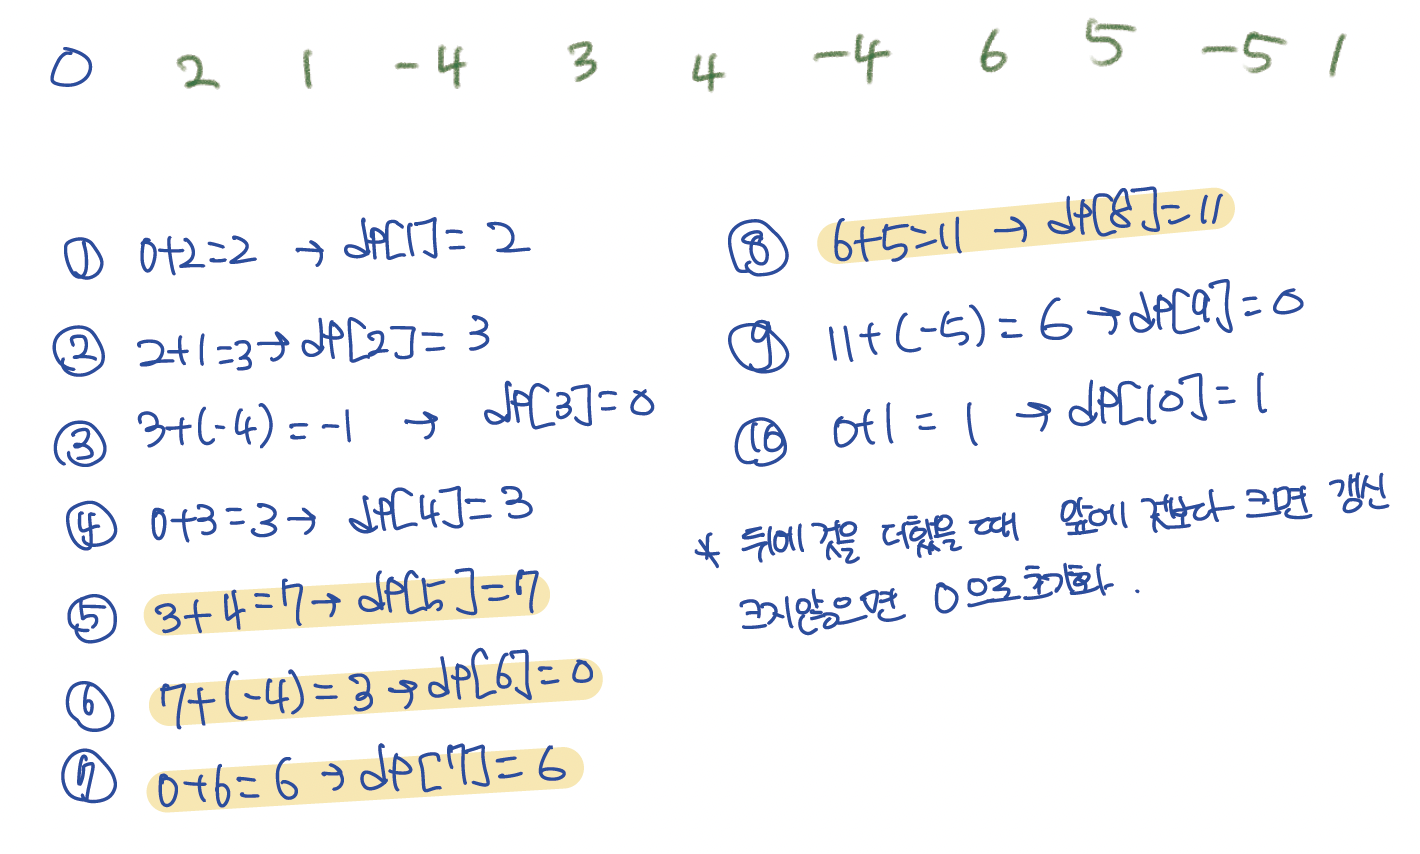 0 2 1 -4 3 4 -4 6 5 -5 1
① 0+2=2 → dp[1] = 2
② 2+1=3 → dp[2] = 3
③ 3+(-4) = -1 → dp[3] = 0
④ 0+3=3 → dp[4] = 3
⑤ 3+4=7 → dp[5] = 7
⑥ 7+(-4) = 3 → dp[6] = 0
⑦ 0+6 = 6 → dp[7] = 6
⑧ 6+5=11 → dp[8] = 11
⑨ 11+(-5) = 6 → dp[9] = 0
⑩ 0+1 = 1 → dp[10] = 1
* 뒤에 것을 더했을 때 앞에 것보다 크면 갱신
크지않으면 0으로 초기화.